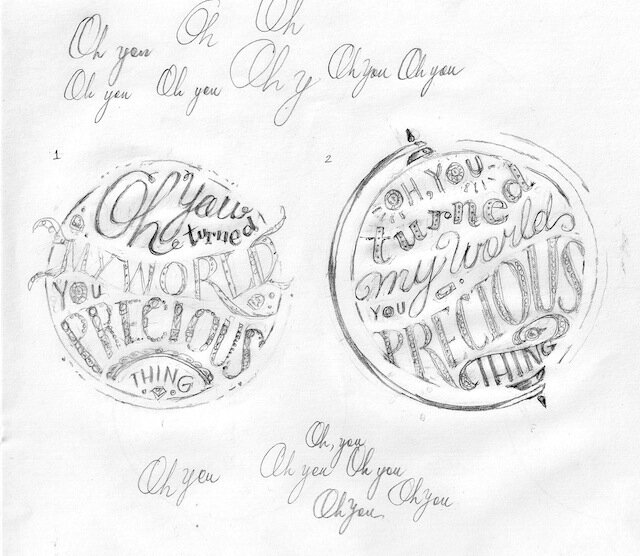 Oh Oh
Oh you
Oh y Oh You Oh you
Oh you Oh you
1
Oh You
turned
MY WORLD
YOU
PRECIOUS
THING
2
OH, YOU
turned
my World
YOU
PRECIOUS
THING
Oh, you
Oh you Oh you Oh you
Oh You Oh You